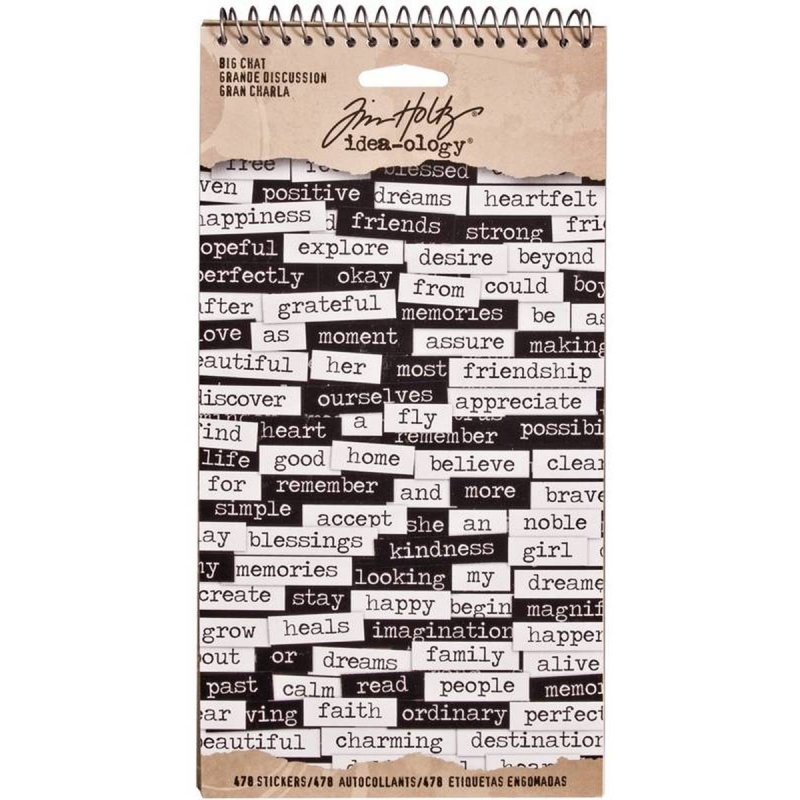 BIG CHAT
GRANDE DISCUSSION
GRAN CHARLA
Tim Holtz®
idea-ology®
free blessed
ven positive dreams heartfelt
happiness d friends strong fri
opeful explore desire beyond
perfectly okay from could boy
after grateful memories be as
love as moment assure making
eautiful her most friendship
discover ourselves appreciate
find heart a fly remember possibi
life good home believe clear
for remember and more brave
simple accept she an noble
ay blessings kindness girl
y memories looking my dreame
create stay happy begin magnif
grow heals imagination happen
out or dreams family alive
past calm read people memor
ear ving faith ordinary perfect
beautiful charming destination
478 STICKERS/478 AUTOCOLLANTS/478 ETIQUETAS ENGOMADAS